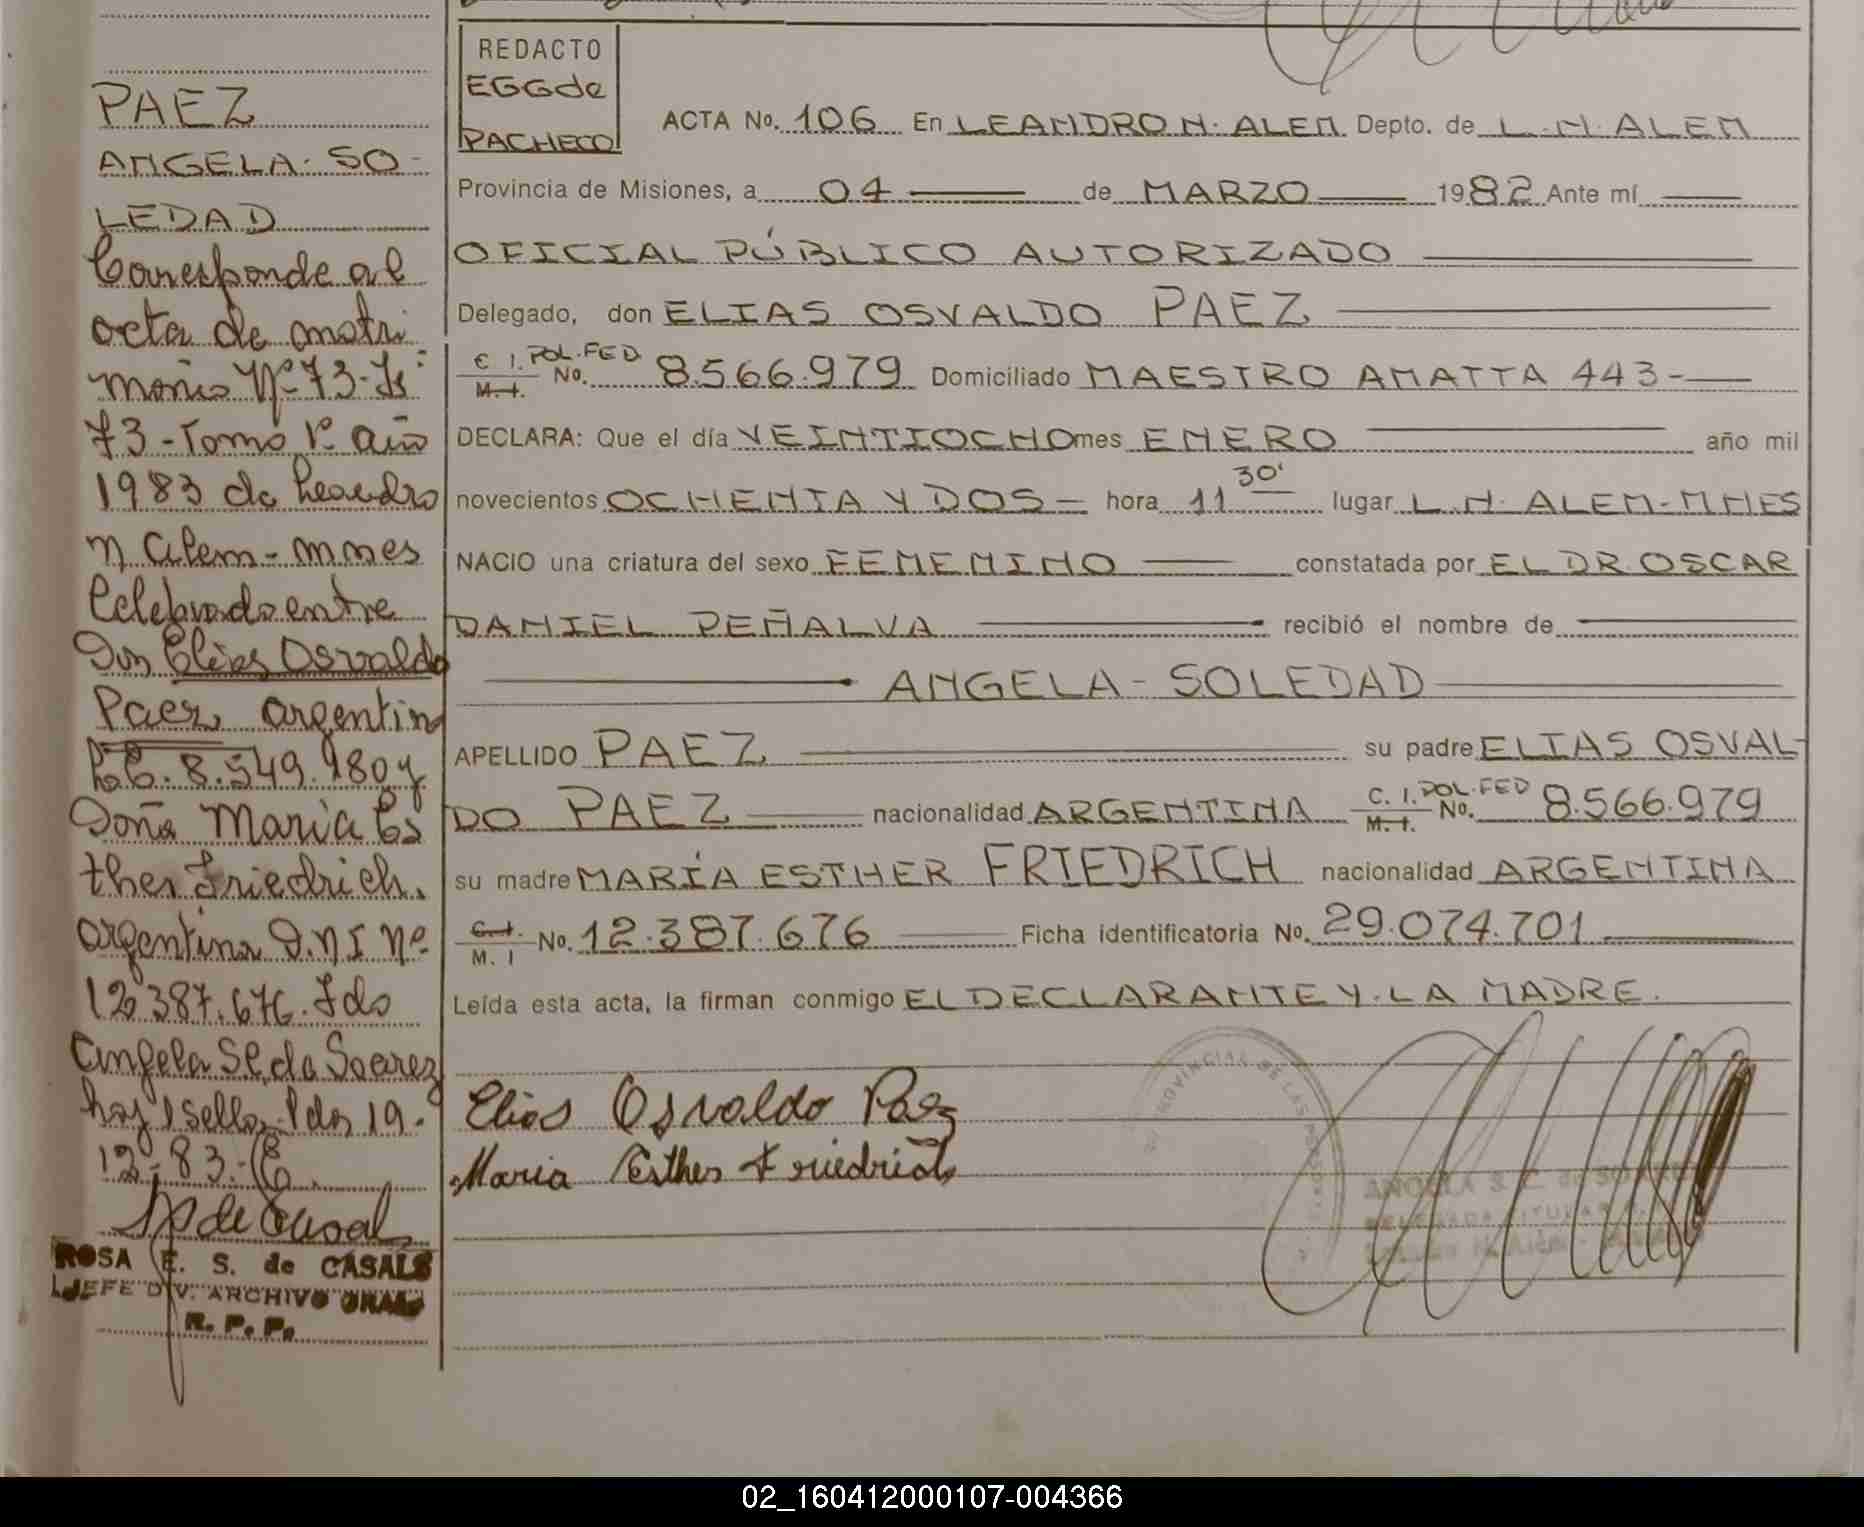 PAEZ
ANGELA-SO-
LEDAD
Corresponde al
acta de matri
monio Nº 73-Fs
73-Tomo 1º año
1983 de Leandro
N Alem-Mnes
Celebrado entre
Don Elias Osvaldo
Paez, argentino
8.549.180 y
Doña Maria Es
ther Friedrich.
argentina D.N.I Nº
12.387.676. Fdo
Angela S C. de Soarez
hay 1 sello. 19-
12-83.
ROSA E. S. de CASALS
JEFE DIV. ARCHIVO GRAL
R. P. P.
REDACTO
EGGde
PACHECO
ACTA No. 106 En LEANDRO N. ALEM Depto. de L. N. ALEM
Provincia de Misiones, a 04 de MARZO 1982 Ante mí
OFICIAL PÚBLICO AUTORIZADO
Delegado, don ELIAS OSVALDO PAEZ
C. I. POL. FED M. I. No. 8.566.979 Domiciliado MAESTRO AMATTA 443-
DECLARA: Que el día VEINTIOCHO mes ENERO año mil
novecientos OCHENTA Y DOS- hora 11 30' lugar L. N. ALEM-MNES
NACIO una criatura del sexo FEMENINO constatada por EL DR. OSCAR
DANIEL PEÑALVA recibió el nombre de
ANGELA-SOLEDAD
APELLIDO PAEZ su padre ELIAS OSVAL-
DO PAEZ nacionalidad ARGENTINA C. I. POL. FED M. I. No. 8.566.979
su madre MARÍA ESTHER FRIEDRICH nacionalidad ARGENTINA
C. I. M. I No. 12.387.676 Ficha identificatoria No. 29.074.701
Leída esta acta, la firman conmigo EL DECLARANTE Y LA MADRE.
Elias Osvaldo Paez
Maria Esther Friedrich
PROVINCIAL DE LAS PERSONAS
ANGELA S. C. de
DELEGADA TITULAR
Leandro N. Alem -
02_160412000107-004366